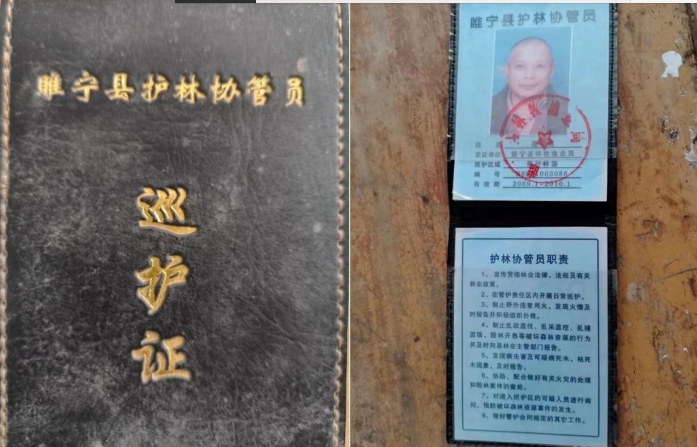 睢宁县护林协管员
巡
护
证
睢宁县护林协管员
巡护区域
编 号
有 效 期 2009.1-2010.1
护林协管员职责
1、宣传贯彻林业法律、法规及有关
林业政策。
2、在管护责任区内开展日常巡护。
3、制止野外违章用火，发现火情及
时报告并积极组织扑救。
4、制止乱砍滥伐、乱采滥挖、乱捕
滥猎、毁林开垦等破坏森林资源的行为
并及时向县林业主管部门报告。
5、发现病虫害及可疑病死木、枯死
木现象，及时报告。
6、协助、配合做好有关火灾的处理
和毁林案件的查处。
7、对进入巡护区的可疑人员进行询
问，预防破坏森林资源案件的发生。
8、做好管护合同规定的其它工作。